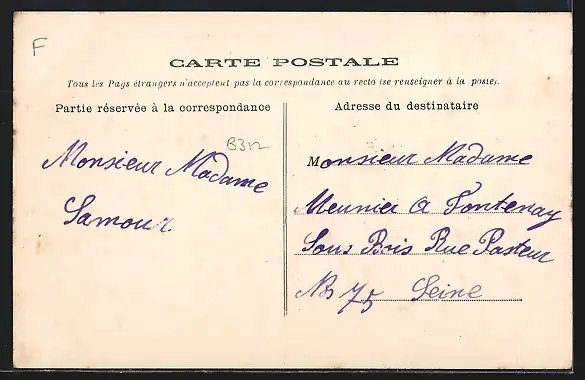 F
CARTE POSTALE
Tous les Pays étrangers n'acceptent pas la correspondance au recto (se renseigner à la poste).
Partie réservée à la correspondance
B312
Monsieur Madame
Lamour
Adresse du destinataire
Monsieur Madame
Meunier a Fontenay
Sous Bois Rue Pasteur
No 75 Seine